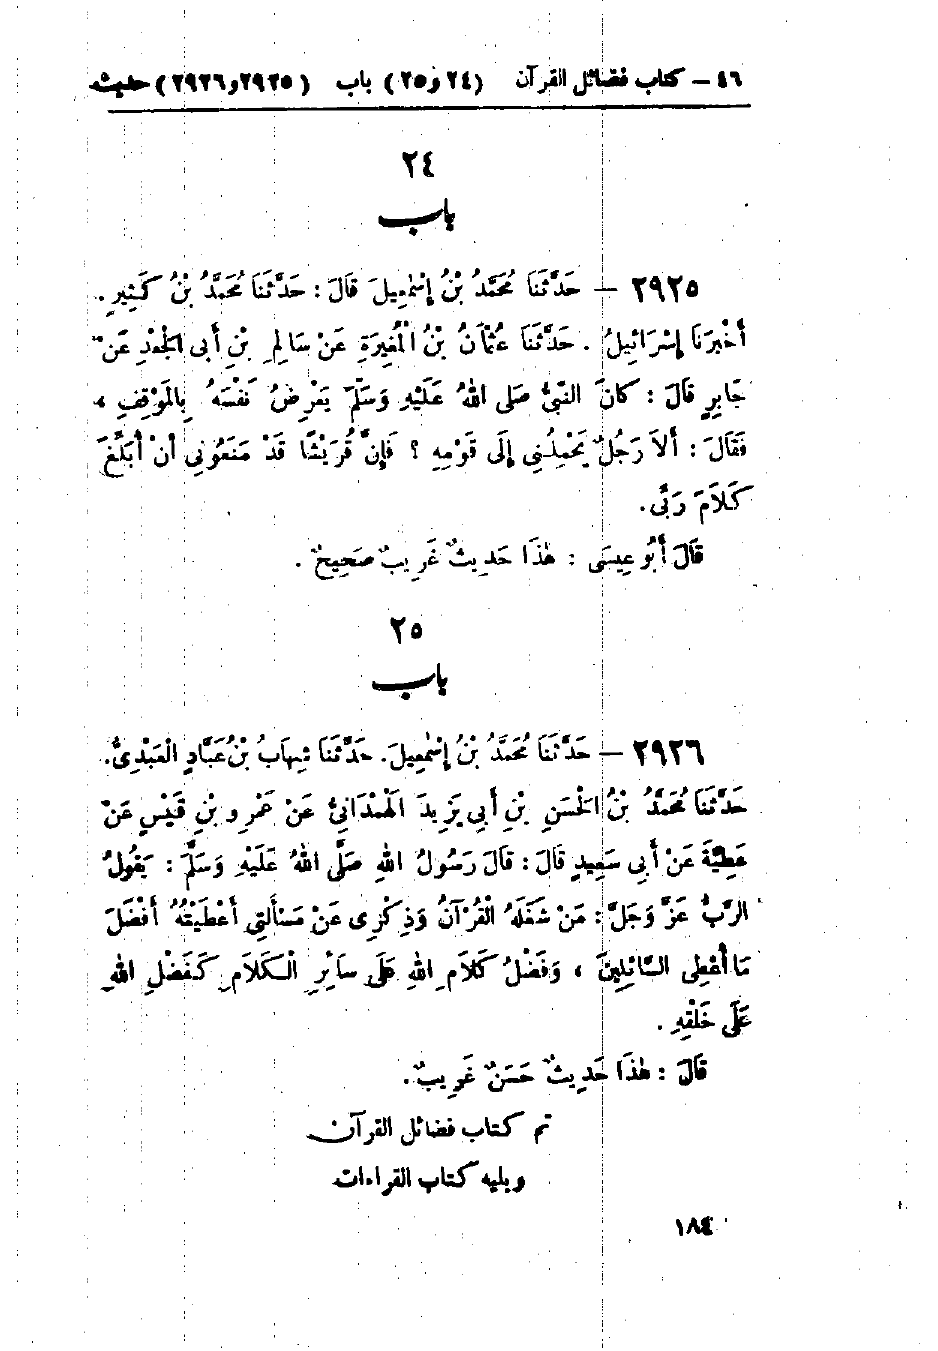 ٤٦ – كتاب فضائل القرآن (٢٤ و ٢٥) باب (٢٩٢٥ و ٢٩٢٦) حديث
٢٤
باب
٢٩٢٥ – حَدَّثَنَا مُحَمَّدُ بْنُ إِسْمٰعِيلَ قَالَ : حَدَّثَنَا مُحَمَّدُ بْنُ كَثِيرٍ .
أَخْبَرَنَا إِسْرَائِيلُ . حَدَّثَنَا عُثْمَانُ بْنُ الْمُغِيرَةِ عَنْ سَالِمِ بْنِ أَبِى الْجَعْدِ عَنْ
جَابِرٍ قَالَ : كَانَ النَّبِىُّ صَلى اللهُ عَلَيْهِ وَسَلَّمَ يَعْرِضُ نَفْسَهُ بِالمَوْقِفِ ،
فَقَالَ : أَلاَ رَجُلٌ يَحْمِلُنِى إِلَى قَوْمِهِ ؟ فَإِنَّ قُرَيْشًا قَدْ مَنَعُونِى أَنْ أُبَلِّغَ
كَلاَمَ رَبِّى .
قَالَ أَبُو عِيسَى : هٰذَا حَدِيثٌ غَرِيبٌ صَحِيحٌ .
٢٥
باب
٢٩٢٦ – حَدَّثَنَا مُحَمَّدُ بْنُ إِسْمٰعِيلَ. حَدَّثَنَا شِهَابُ بْنُ عَبَّادٍ الْعَبْدِىُّ.
حَدَّثَنَا مُحَمَّدُ بْنُ الْحَسَنِ بْنِ أَبِى يَزِيدَ الْهَمْدَانِىُّ عَنْ عَمْرِو بْنِ قَيْسٍ عَنْ
عَطِيَّةَ عَنْ أَبِى سَعِيدٍ قَالَ : قَالَ رَسُولُ اللهِ صَلَّى اللهُ عَلَيْهِ وَسَلَّمَ : يَقُولُ
الرَّبُّ عَزَّ وَجَلَّ : مَنْ شَغَلَهُ الْقُرْآنُ وَذِكْرِى عَنْ مَسْأَلَتِى أَعْطَيْتُهُ أَفْضَلَ
مَا أُعْطِى السَّائِلِينَ ، وَفَضْلُ كَلاَمِ اللهِ عَلَى سَائِرِ الْكَلاَمِ كَفَضْلِ اللهِ
عَلَى خَلْقِهِ .
قَالَ : هٰذَا حَدِيثٌ حَسَنٌ غَرِيبٌ .
تم كتاب فضائل القرآن
ويليه كتاب القراءات
١٨٤